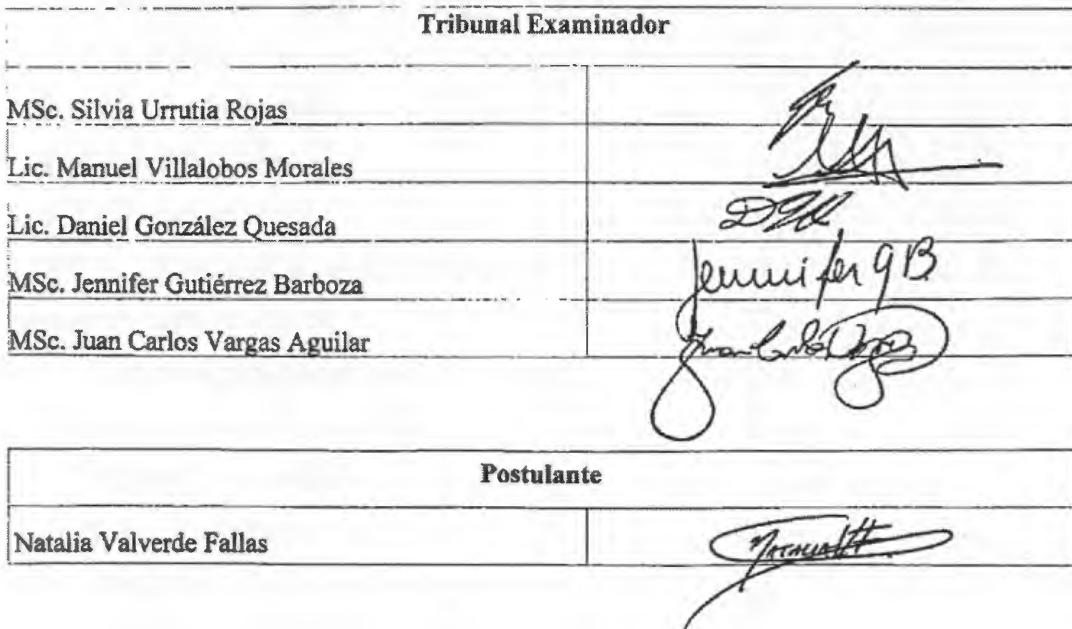 Tribunal Examinador
MSc. Silvia Urrutia Rojas
Lic. Manuel Villalobos Morales
Lic. Daniel González Quesada
MSc. Jennifer Gutiérrez Barboza Jennifer g B
MSc. Juan Carlos Vargas Aguilar
Postulante
Natalia Valverde Fallas